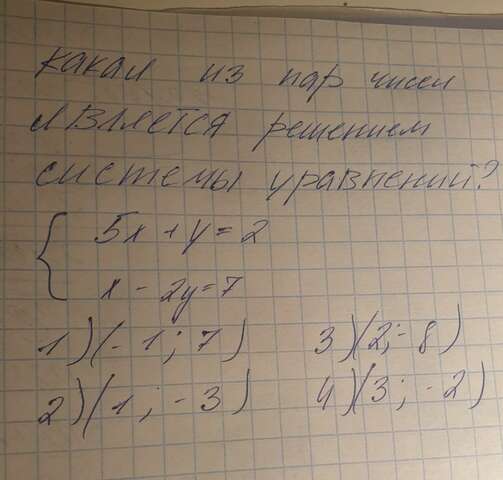 какая из пар чисел
является решением
системы уравнений?
5x + y = 2
x - 2y = 7
1) (-1; 7) 3) (2; -8)
2) (1; -3) 4) (3; -2)